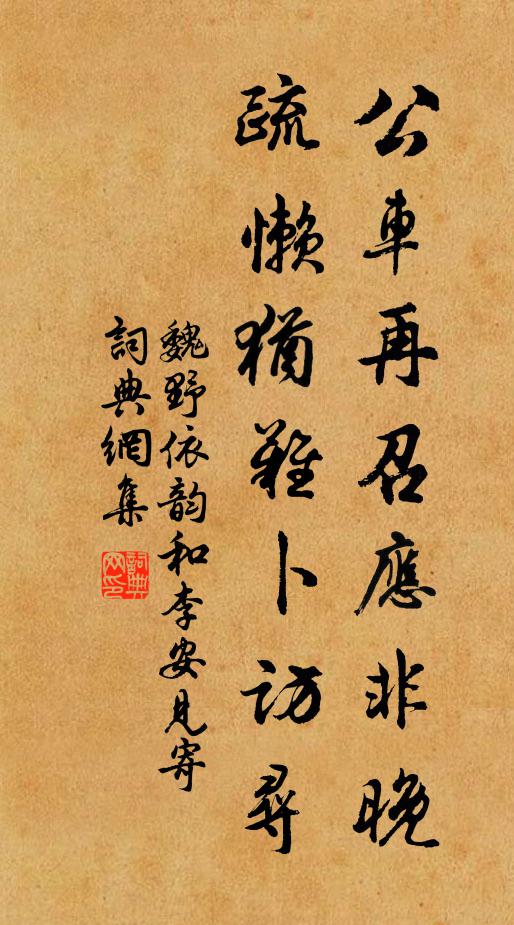 公車再召應非晚
疏懶猶難卜訪尋
魏野依韵和李安見寄
詞典網集
詞典網印